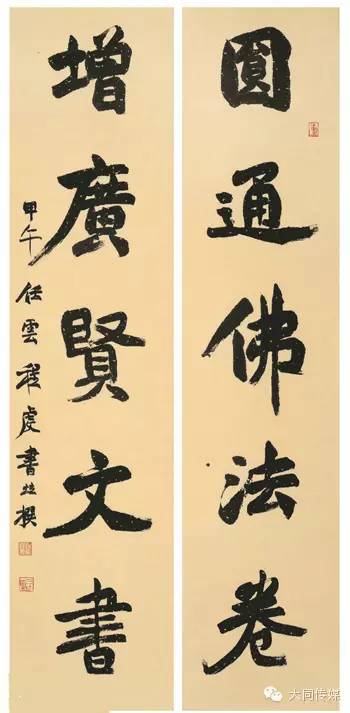 圓通佛法卷
增廣賢文書
甲午任雲程虔書並撰
大同传媒